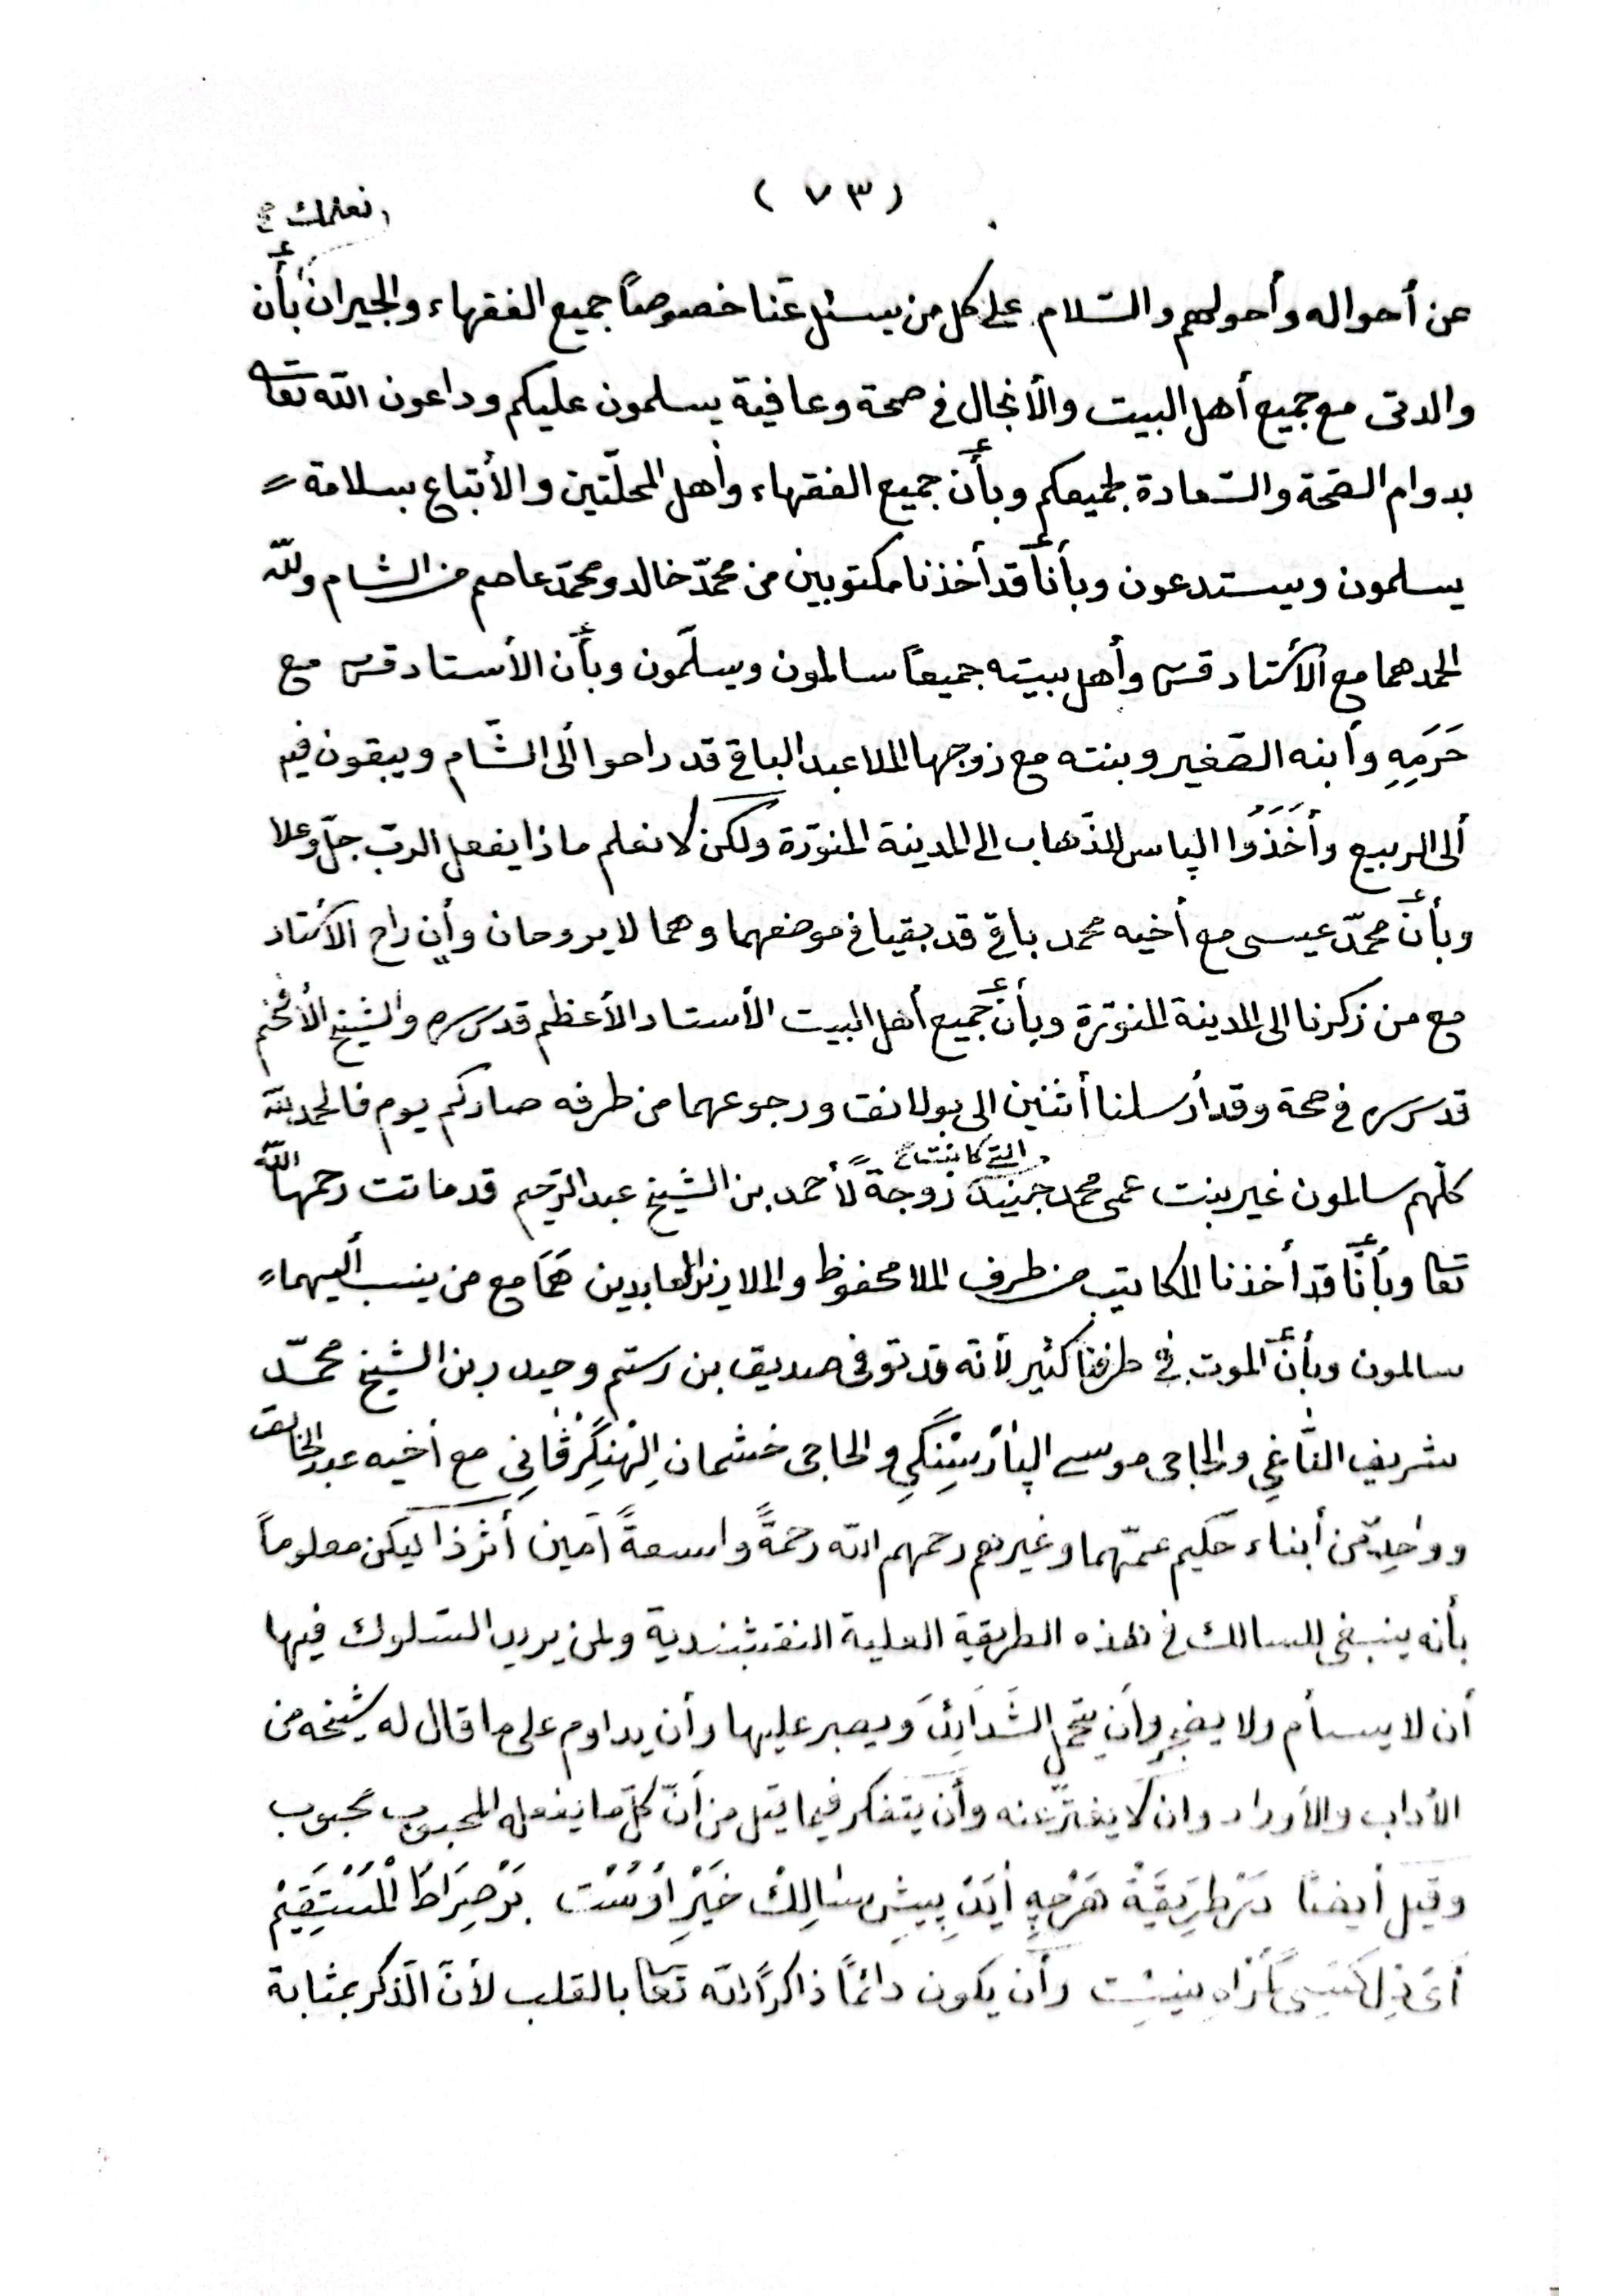 (٧٣)
نعلمك
عن أحواله وأحولهم والسّلام على كل من يسئل عنّا خصوصًا جميع الفقهاء والجيران بأن
والدتى مع جميع أهل البيت والأنجال فى صحة وعافية يسلمون عليكم وداعون الله تعا
بدوام الصّحة والسّعادة لجميعكم وبأن جميع الفقهاء وأهل المحلّتين والأتباع بسلامة
يسلمون ويستدعون وبأنا قد أخذنا مكتوبين من محمّد خالد ومحمّد عاصم من الشام ولله
الحمد هما مع الأستاد قس وأهل بيته جميعًا سالمون ويسلّمون وبأن الأستاد قس مع
حَرَمِهِ وأبنه الصّغير وبنته مع زوجها الملا عبد الباقى قد راحوا ألى الشّام ويبقون فيه
ألى الربيع وأَخَذُوا الپاس للذّهاب الى المدينة المنوّرة ولكن لا نعلم ماذا يفعل الربّ جلّ وعلا
وبأنّ محمّد عيسى مع أخيه محمد باقى قد بقيا فى موضعهما وهما لا يروحان وأن راح الأستاد
مع من ذكرنا الى المدينة المنوّرة وبأن جميع أهل البيت الأستاد الأعظم قدس سره والشيخ الأفخم
قدس سره فى صحة وقد أرسلنا أثنين الى بولانق ورجوعهما من طرفه صار كم يوم فالحمد لله
كلّهم سالمون غير بنت عمى محمد جنيد التى كانت زوجةً لأحمد بن الشيخ عبد الرّحيم قد ماتت رحمها الله
تعا وبأنّا قد أخذنا المكاتيب من طرف الملا محفوظ والملا زين العابدين هما مع من ينسب أليهما
سالمون وبأنّ الموت فى طرفنا كثير لأنه قد توفى صديق بن رستم وحيدر بن الشيخ محمّد
شريف الثاغى والحاجى موسى والحاجى خشمان مع أخيه عبد الخالق
وواحد من أبناء حكيم عمّهما وغيرهم رحمهم الله رحمةً واسعةً آمين أثر ذا ليكن معلوماً
بأنه ينبغى للسالك فى هذه الطريقة العلية النقشبندية ولمن يريد السّلوك فيها
أن لا يسأم ولا يضجر وأن يتحمل الشَدَائِدَ ويصبر عليها وأن يداوم على ما قال له شيخه من
الأداب والأوراد وان لا يفترّ عنه وأن يتفكر فيما قيل من أنّ كلّ ما يفعله المحبوب محبوب
وقيل أيضًا دَرْ طَرِيقَةْ هَرْچِهِ أيَدْ پِيشِ سَالِكْ خَيْرِ اُوسْت بَرْ صِرَاطِ الْمُسْتَقِيمْ
أىْ دِلْ كَسِى گُمْرَاهِ نِيسْت وأن يكون دائمًا ذاكرًا لله تعا بالقلب لأنّ الذّكر بمثابة